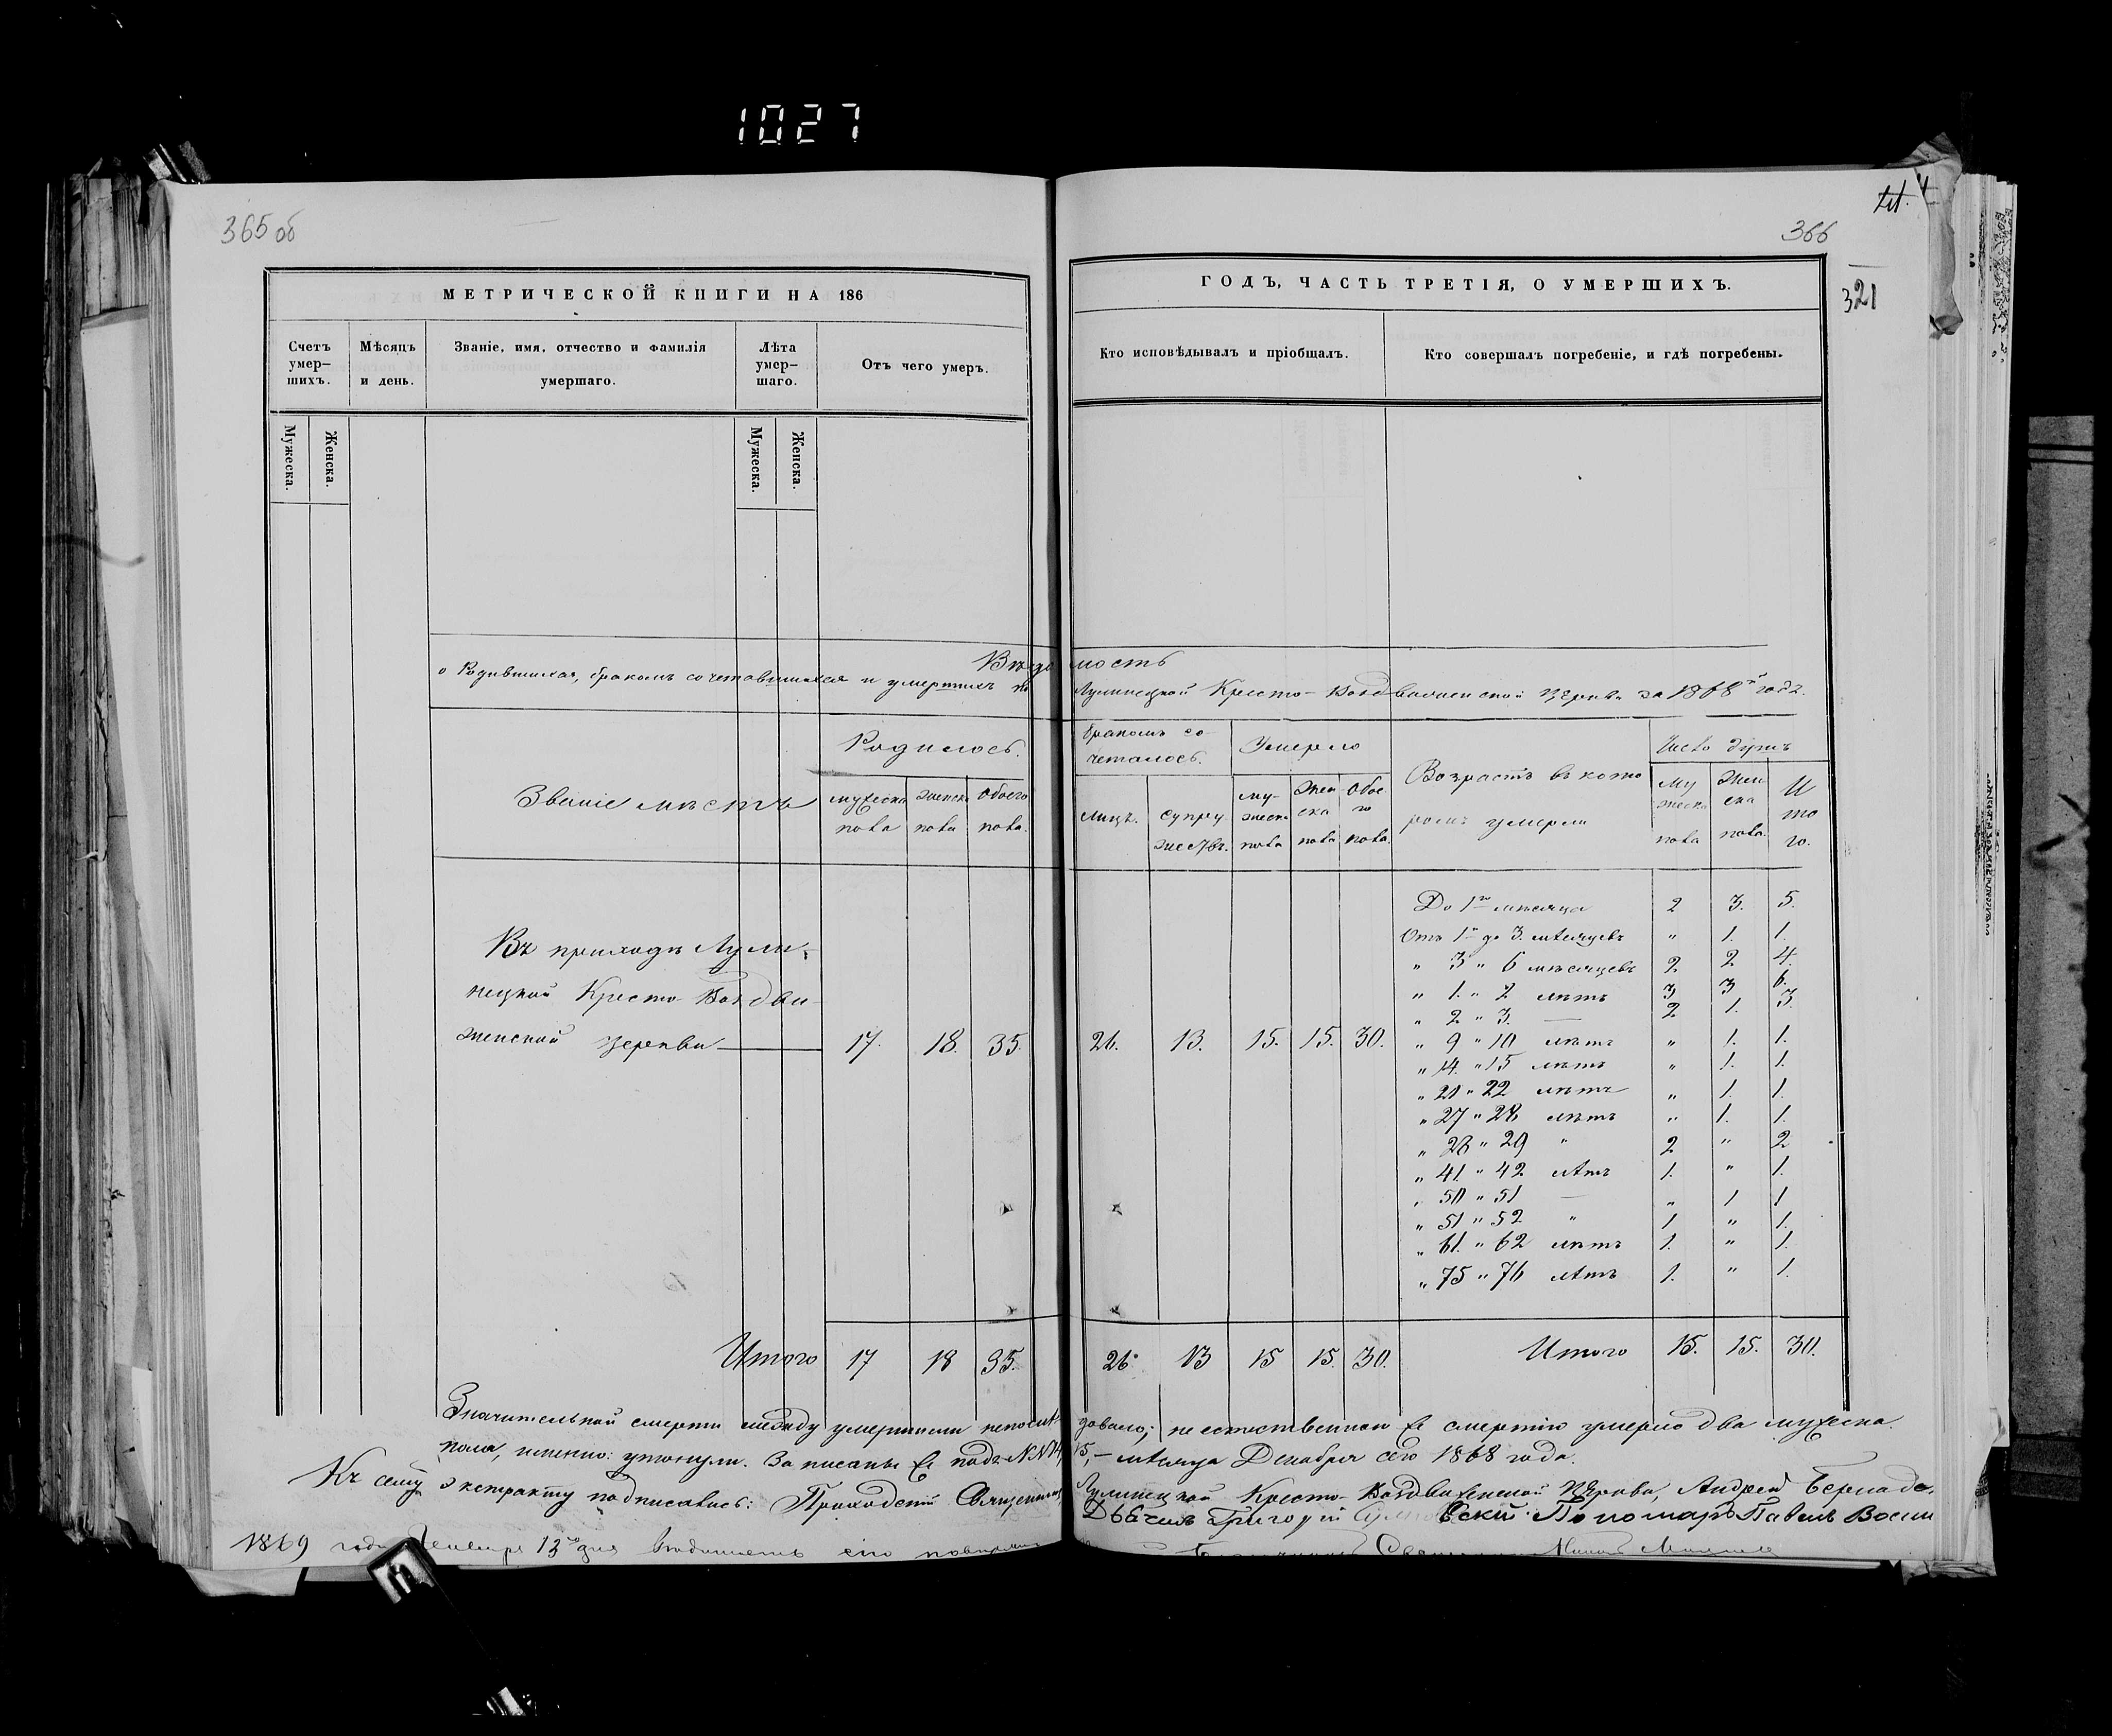 1027
365 об
366
321
МЕТРИЧЕСКОЙ КНИГИ НА 186
ГОДЪ, ЧАСТЬ ТРЕТІЯ, О УМЕРШИХЪ.
Счетъ умер-шихъ.
Мѣсяцъ и день.
Званіе, имя, отчество и фамилія умершаго.
Лѣта умер-шаго.
Отъ чего умеръ.
Кто исповѣдывалъ и пріобщалъ.
Кто совершалъ погребеніе, и гдѣ погребены.
Мужеска.
Женска.
Мужеска.
Женска.
Вѣдомость
о Родившихся, бракомъ сочетавшихся и умершихъ по Лулинецкой Кресто-Воздвиженской церкви за 1868й годъ.
Званіе мѣстъ
Родилось.
мужеска пола
женска пола
Обоего пола.
бракомъ со-четалось.
лицъ.
супружествъ.
Умерло
му-жеска пола
жен ска пола
обое го пола.
Возрастъ въ кото ромъ умерли
Число душъ
му жеска пола
жен ска пола.
И то го.
Въ приходѣ Лули-
нецкой Кресто-Воздви-
женской церкви
17. 18. 35. 26. 13. 15. 15. 30.
До 1го мѣсяца 2 3. 5.
Отъ 1го до 3. мѣсяцевъ " 1. 1.
" 3 " 6 мѣсяцевъ 2 2 4.
" 1. " 2 лѣтъ 3 3 6.
" 2 " 3. — 2 1. 3.
" 9 " 10 лѣтъ " 1. 1.
" 14. " 15 лѣтъ " 1. 1.
" 21 " 22 лѣтъ " 1. 1.
" 27 " 28 лѣтъ " 1. 1.
" 28 " 29 " 2 " 2
" 41. " 42 лѣтъ 1. " 1.
" 50 " 51 — " 1 1
" 51 " 52 " 1 " 1.
" 61. " 62 лѣтъ 1. " 1.
" 75 " 76 лѣтъ 1. " 1.
Итого 17 18 35. 26. 13 15 15. 30. Итого 15. 15. 30.
Значительной смерти между умершими непослѣдовало; неестественною смертію умерло два мужеска
пола, именно: утонули. Записаны подъ NN 14, 15, — мѣсяца Декабря сего 1868 года.
Къ сему экстракту подписались: Приходскій Священникъ Лулинецкой Кресто-Воздвиженской Церкви, Андрей
Дьячекъ Григорій Пономарь Павелъ
1869 года Генваря 13го дня